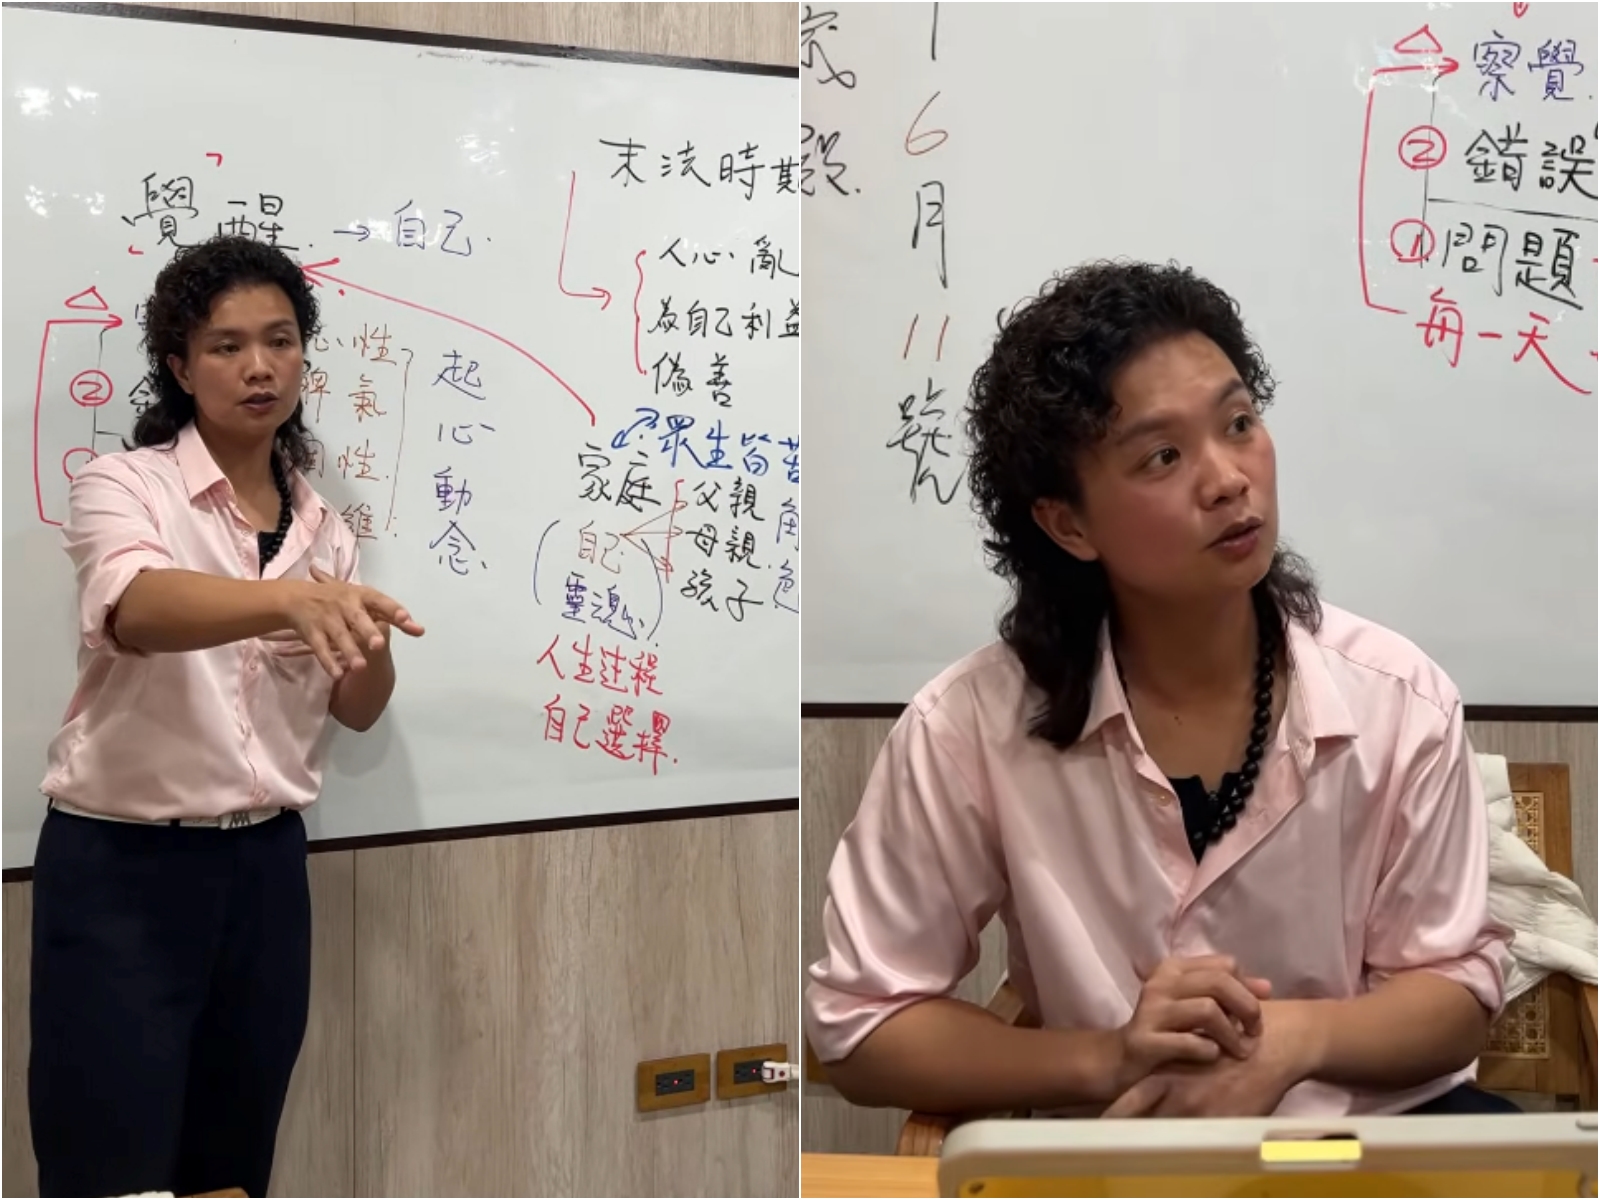 末法時期
「覺醒」→自己.
人心亂
為自己利益
偽善
△
②
心性
脾氣
個性.
維.
起心動念.
眾生皆苦
家庭
父親
母親.
孩子
角色
(自己
靈魂)
人生过程
自己選擇.
6月11號
△
察覺.
②錯誤
①問題
每一天